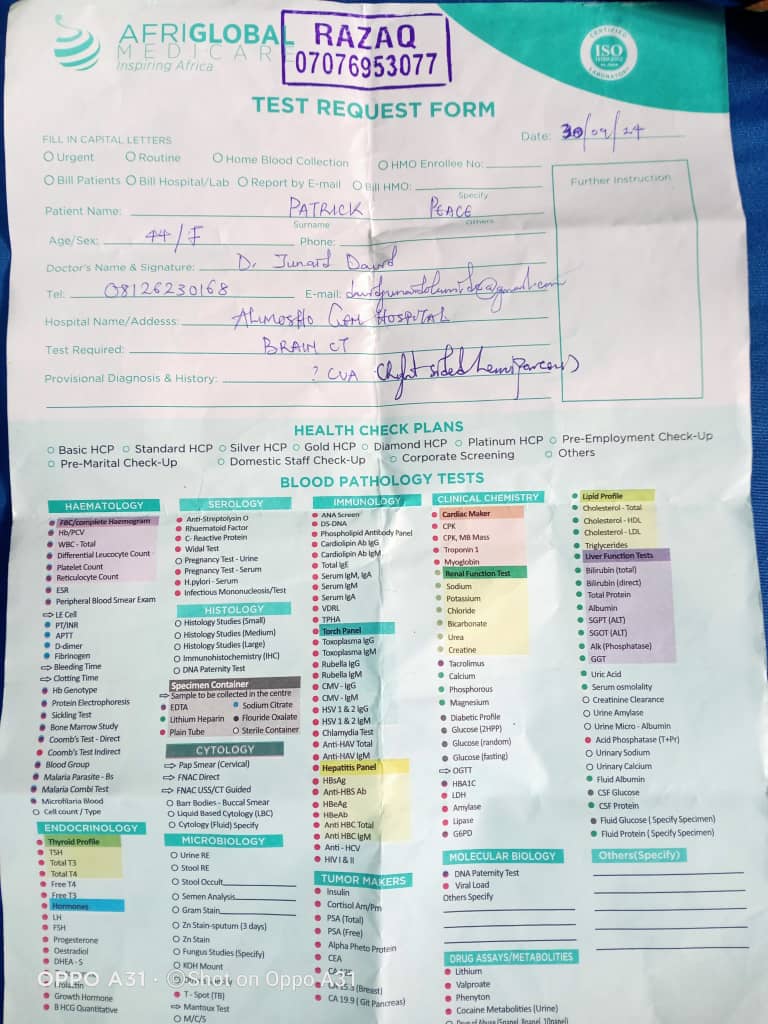 AFRIGLOBAL
MEDICARE
Inspiring Africa
RAZAQ
07076953077
CERTIFIED
ISO
LABORATORY
TEST REQUEST FORM
FILL IN CAPITAL LETTERS
Date: 30/09/24
Urgent Routine Home Blood Collection HMO Enrollee No:
Bill Patients Bill Hospital/Lab Report by E-mail Bill HMO:
Specify
Further Instruction
Patient Name: PATRICK PEACE
Surname Others
Age/Sex: 44/F Phone:
Doctor's Name & Signature: Dr
Tel: 08126230168 E-mail:
Hospital Name/Addesss: HOSPITAL
Test Required: BRAIN CT
Provisional Diagnosis & History: ? CVA (Right sided hemiparesis)
HEALTH CHECK PLANS
Basic HCP Standard HCP Silver HCP Gold HCP Diamond HCP Platinum HCP Pre-Employment Check-Up
Pre-Marital Check-Up Domestic Staff Check-Up Corporate Screening Others
BLOOD PATHOLOGY TESTS
HAEMATOLOGY
FBC/complete Haemogram
Hb/PCV
WBC - Total
Differential Leucocyte Count
Platelet Count
Reticulocyte Count
ESR
Peripheral Blood Smear Exam
LE Cell
PT/INR
APTT
D-dimer
Fibrinogen
Bleeding Time
Clotting Time
Hb Genotype
Protein Electrophoresis
Sickling Test
Bone Marrow Study
Coomb's Test - Direct
Coomb's Test Indirect
Blood Group
Malaria Parasite - Bs
Malaria Combi Test
Microfilaria Blood
Cell count / Type
ENDOCRINOLOGY
Thyroid Profile
TSH
Total T3
Total T4
Free T4
Free T3
Hormones
LH
FSH
Progesterone
Oestradiol
DHEA - S
Prolactin
Growth Hormone
B HCG Quantitative
SEROLOGY
Anti-Streptolysin O
Rheumatoid Factor
C- Reactive Protein
Widal Test
Pregnancy Test - Urine
Pregnancy Test - Serum
H.pylori - Serum
Infectious Mononucleosis/Test
HISTOLOGY
Histology Studies (Small)
Histology Studies (Medium)
Histology Studies (Large)
Immunohistochemistry (IHC)
DNA Paternity Test
Specimen Container
Sample to be collected in the centre
EDTA Sodium Citrate
Lithium Heparin Flouride Oxalate
Plain Tube Sterile Container
CYTOLOGY
Pap Smear (Cervical)
FNAC Direct
FNAC USS/CT Guided
Barr Bodies - Buccal Smear
Liquid Based Cytology (LBC)
Cytology (Fluid) Specify
MICROBIOLOGY
Urine RE
Stool RE
Stool Occult
Semen Analysis
Gram Stain
Zn Stain-sputum (3 days)
Zn Stain
Fungus Studies (Specify)
KOH Mount
T - Spot (TB)
Mantoux Test
M/C/S
IMMUNOLOGY
ANA Screen
DS-DNA
Phospholipid Antibody Panel
Cardiolipin Ab IgG
Cardiolipin Ab IgM
Total IgE
Serum IgM, IgA
Serum IgM
Serum IgA
VDRL
TPHA
Torch Panel
Toxoplasma IgG
Toxoplasma IgM
Rubella IgG
Rubella IgM
CMV - IgG
CMV - IgM
HSV 1 & 2 IgG
HSV 1 & 2 IgM
Chlamydia Test
Anti-HAV Total
Anti-HAV IgM
Hepatitis Panel
HBsAg
Anti-HBS Ab
HBeAg
HBeAb
Anti HBC Total
Anti HBC IgM
Anti - HCV
HIV I & II
TUMOR MAKERS
Insulin
Cortisol Am/Pm
PSA (Total)
PSA (Free)
Alpha Pheto Protein
CEA
CA 125
CA 15.3 (Breast)
CA 19.9 (Git Pancreas)
CLINICAL CHEMISTRY
Cardiac Maker
CPK
CPK, MB Mass
Troponin 1
Myoglobin
Renal Function Test
Sodium
Potassium
Chloride
Bicarbonate
Urea
Creatine
Tacrolimus
Calcium
Phosphorous
Magnesium
Diabetic Profile
Glucose (2HPP)
Glucose (random)
Glucose (fasting)
OGTT
HBA1C
LDH
Amylase
Lipase
G6PD
MOLECULAR BIOLOGY
DNA Paternity Test
Viral Load
Others Specify
DRUG ASSAYS/METABOLITIES
Lithium
Valproate
Phenyton
Cocaine Metabolities (Urine)
Drug of Abuse (5panel, 8panel, 10panel)
Lipid Profile
Cholesterol - Total
Cholesterol - HDL
Cholesterol - LDL
Triglycerides
Liver Function Tests
Bilirubin (total)
Bilirubin (direct)
Total Protein
Albumin
SGPT (ALT)
SGOT (ALT)
Alk (Phosphatase)
GGT
Uric Acid
Serum osmolality
Creatinine Clearance
Urine Amylase
Urine Micro - Albumin
Acid Phosphatase (T+Pr)
Urinary Sodium
Urinary Calcium
Fluid Albumin
CSF Glucose
CSF Protein
Fluid Glucose ( Specify Specimen)
Fluid Protein ( Specify Specimen)
Others(Specify)
OPPO A31 · ©Shot on Oppo A31